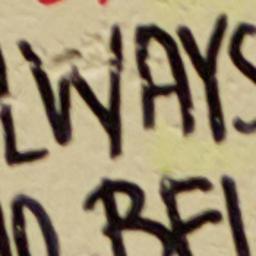 LWAYS
D BEL